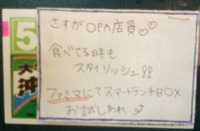 さすがOPA店員♡♡
食べてる時も
スタイリッシュ!!
ファミマにてスマートランチBOX
お試しあれ
5
大
沖